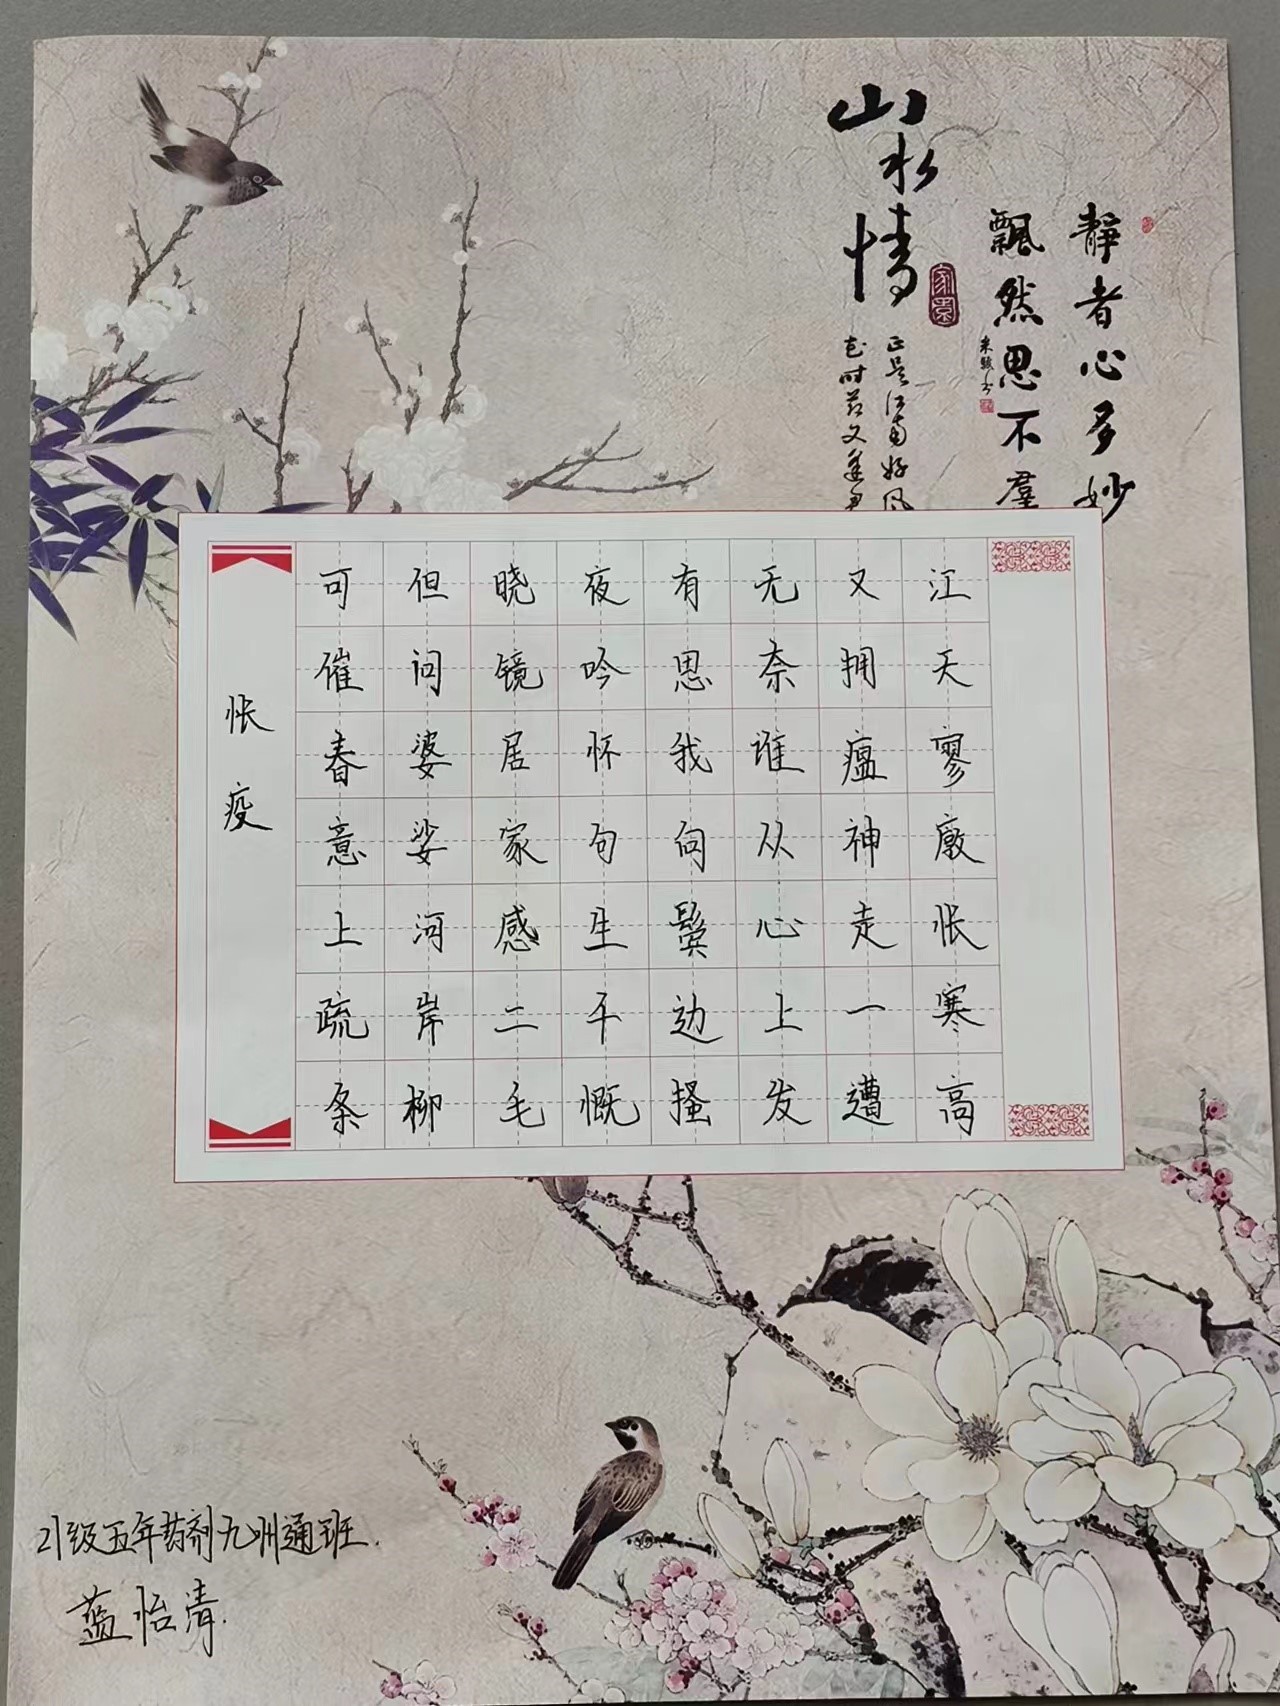 静者心多妙
飘然思不群
山水情
家园
正是江南好风
花时节又逢君
江天寥廓怅寒高
又拥瘟神走一遭
无奈谁从心上发
有思我向鬓边搔
夜吟怀句生千慨
晓镜居家感二毛
但问婆娑河岸柳
可催春意上疏条
怅疫
21级五年药剂九州通班.
蓝怡清.